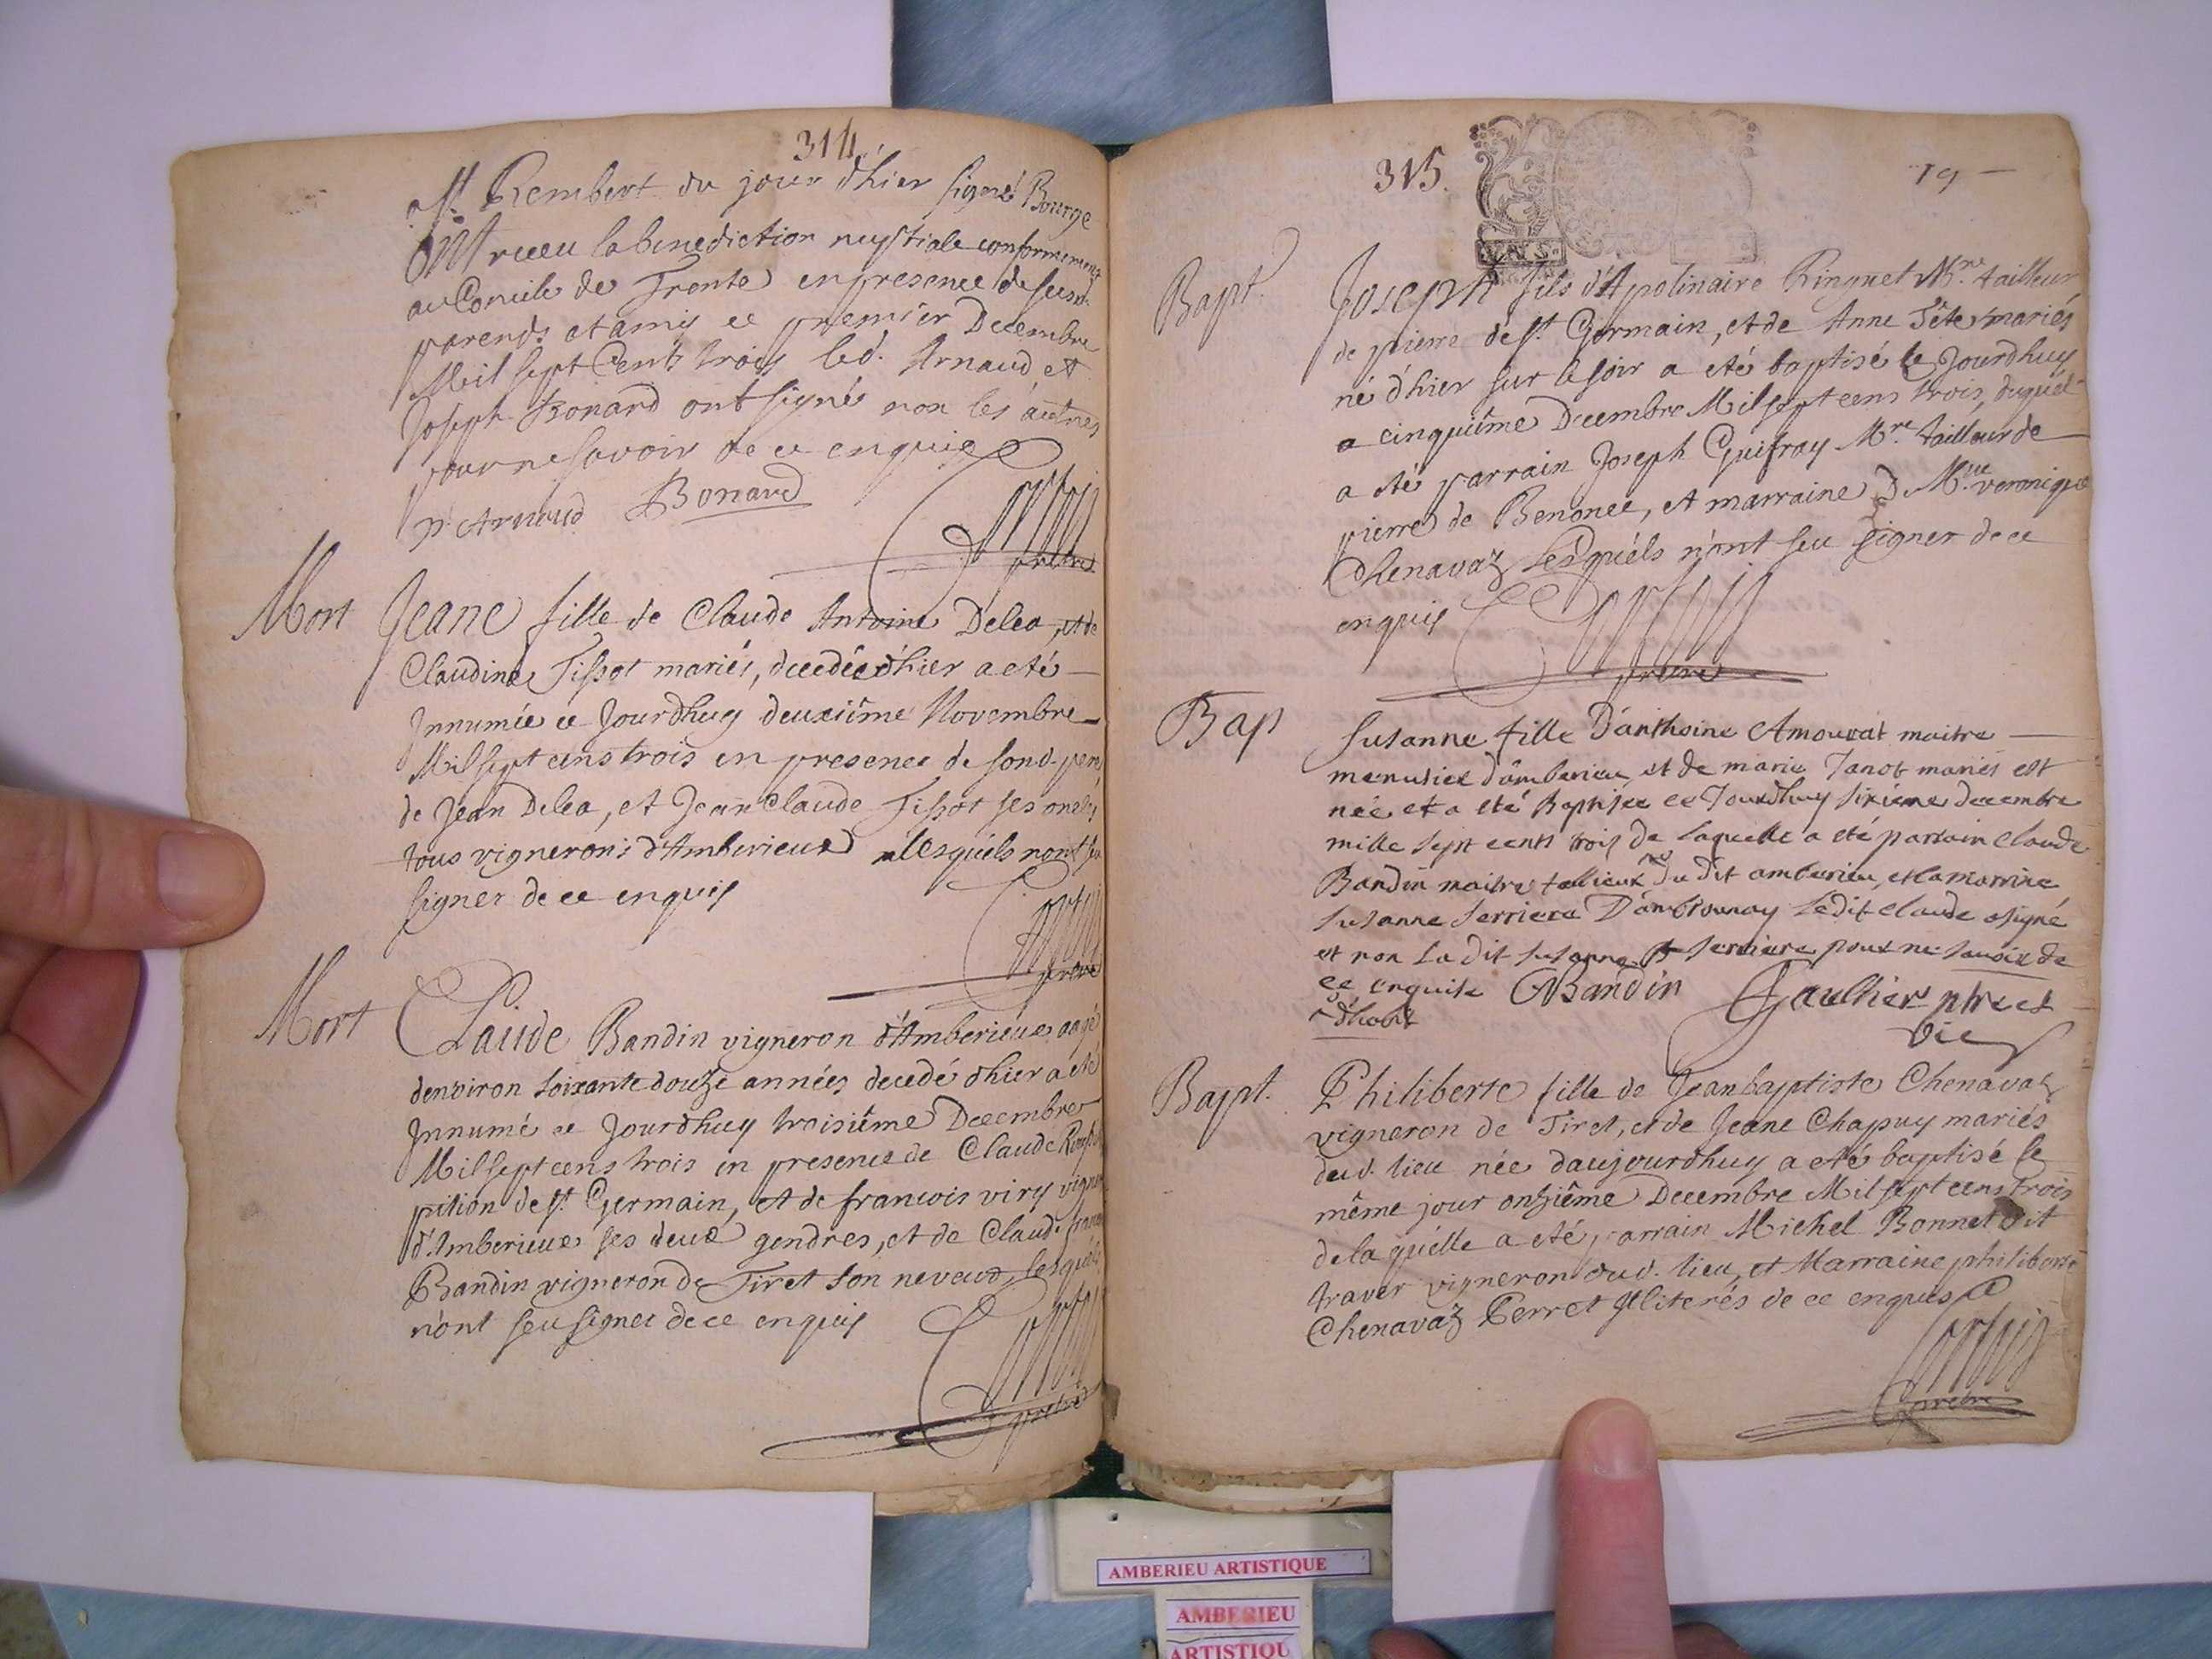 314
a St. Rembert du jour d'hier signé Bourge
Ont receu la benediction nuptiale conformement
au Concile de Trente en presence de susd.
parents et amis ce premier Decembre
Mil sept Cents trois led. Arnaud et
Joseph Bonard ont signés non les autres
pour ne savoir de ce enquis
Arnaud Bonard
prêtre
Mort
Jeane fille de Claude Antoine Delea, et de
Claudine Tissot mariés, decedée d'hier a eté
Innumée ce Jourdhuy deuxiême Novembre
Mil sept cens trois en presence de sond. pere,
de Jean Delea, et Jean Claude Tissot ses oncles,
tous vignerons d'Amberieux lesquéls nont seu
signer de ce enquis
prêtre
Mort
Claude Bandin vigneron d'Amberieux aagé
denviron soixante douze années decedé d'hier a eté
Innumé ce Jourdhuy troisiême Decembre
Mil sept cens trois en presence de Claude
pition de St. Germain, et de francois viry vigner
d'Amberieux ses deux gendres, et de Claude francois
Bandin vigneron de Tiret son neveux, lesquéls
n'ont seu signer de ce enquis
prêtre
315.
19
Bapt.
Joseph fils d'Apolinaire Ringuet Mre. tailleur
de pierre de St. Germain, et de Anne Tête mariés
né d'hier sur le soir a eté baptisé le Jourdhuy
cinquiême Decembre Mil sept cens trois, duquél
a eté parrain Joseph Guifray Mre. tailleur de
pierre de Benonce, et marraine veronique
Chenavaz Lesquéls n'ont seu signer de ce
enquis
prêtre
Bap
Susanne fille D'anthoine Amourat maitre
menusier d'amberieu et de marie Janot mariés est
née et a eté Baptisee ce Jourdhuy sixieme decembre
mille sept cents trois de laquelle a eté parrain claude
Bandin maitre du dit amberieu, et la marrine
susanne serriere D'ambrounay ledit claude a signé
et non la dit susanne serriere pour ne savoir de
ce enquise Bandin Gaulthier ptre et
vic
d'habit
Bapt.
Philiberte fille de Jean baptiste Chenavaz
vigneron de Tiret, et de Jeane Chapuy mariés
dud. lieu née daujourdhuy a eté baptisé le
même jour onziême Decembre Mil sept cens trois
de laquélle a eté parrain Michel Bonnet dit
traver vigneron dud. lieu, et Marraine philiberte
Chenavaz Perret Illiterés de ce enquis
prêtre
AMBERIEU ARTISTIQUE
AMBERIEU
ARTISTIQU